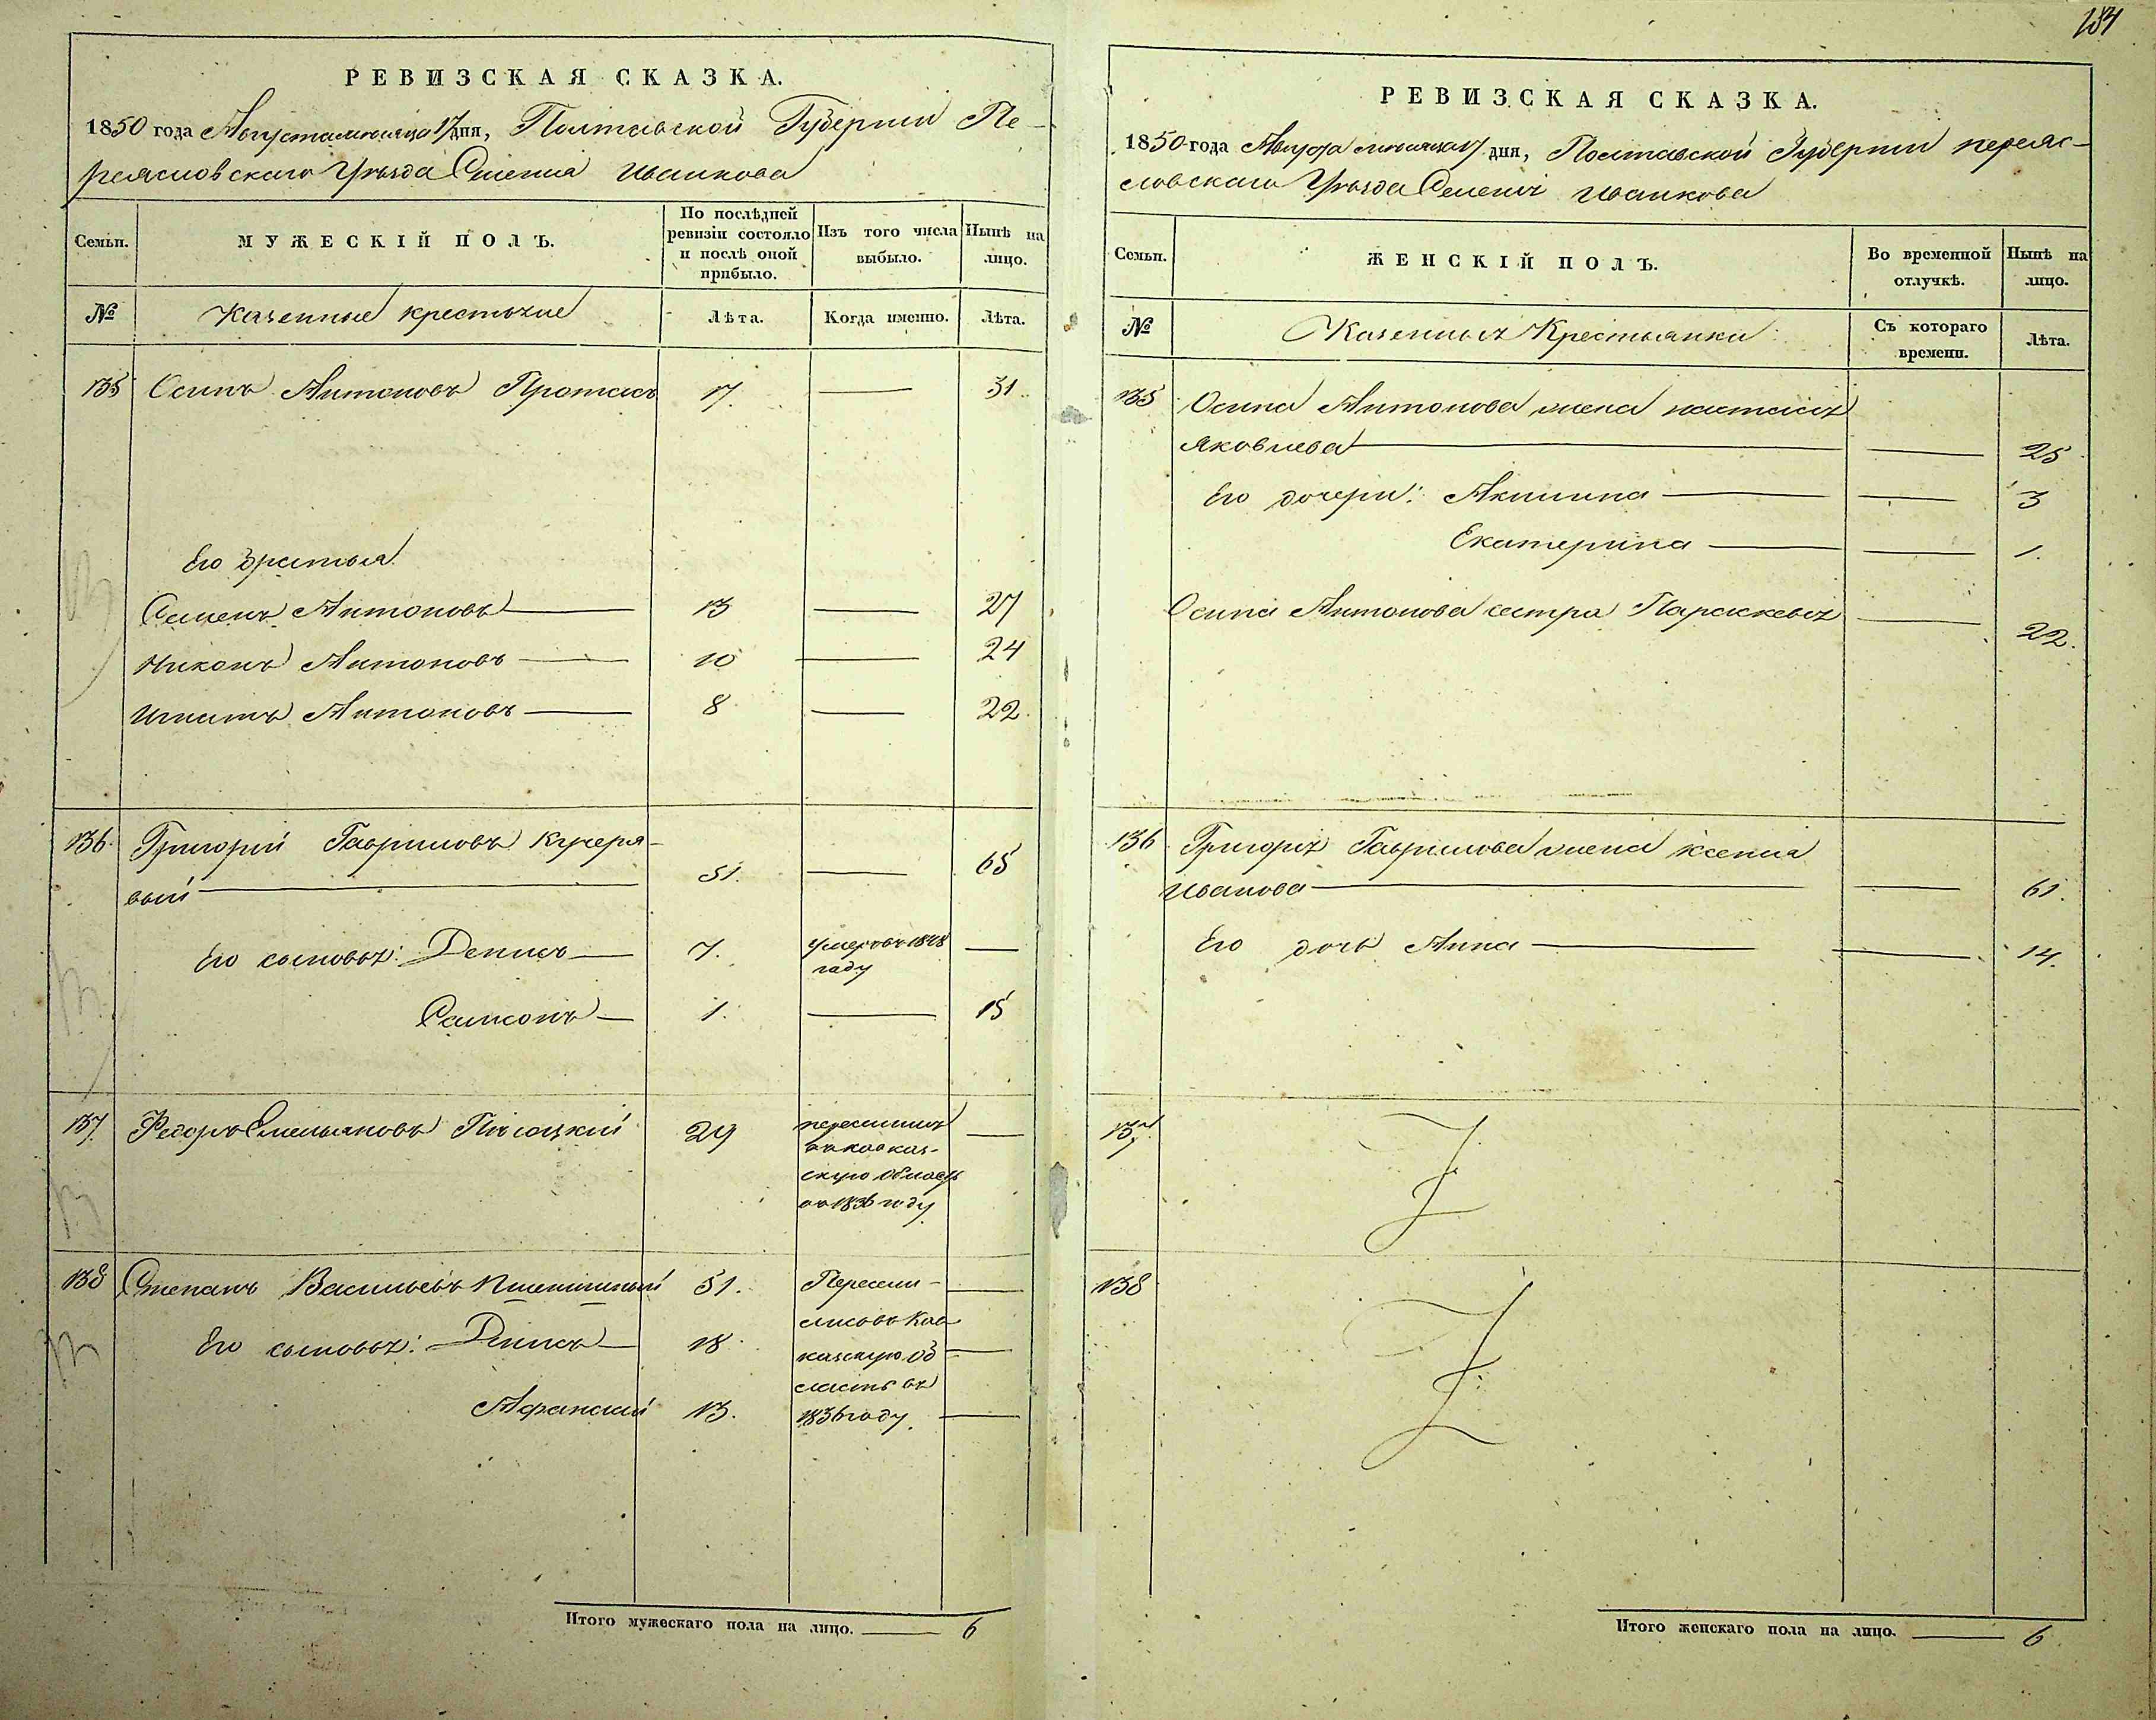 134
РЕВИЗСКАЯ СКАЗКА.
1850 года Августа месяца 17 дня, Полтавской Губернии Пе-
реясловского Уезда Селения Иванкова
Семьи.
МУЖЕСКІЙ ПОЛЪ.
По послѣдней ревизіи состояло и послѣ оной прибыло.
Изъ того числа выбыло.
Нынѣ на лицо.
№
Казенные крестьяне
Лѣта.
Когда именно.
Лѣта.
135 Осипъ Антоновъ Протасъ 17. — 31.
Его братья
Семенъ Антоновъ — 13 — 27
Никонъ Антоновъ — 10 — 24
Игнатъ Антоновъ — 8 — 22.
136. Григорий Гавриловъ Кучеря-
вый — 51. — 65
Его сыновья: Денисъ — 7. умеръ въ 1848 —
году
Самсонъ — 1. — 15
137. Федоръ Емельяновъ 29 переселился —
въ Кавказ-
скую область
въ 1836 году
138 Степанъ Васильевъ Пшеничный 51. Пересели- —
лись въ Кав-
Его сыновья: Денисъ — 18. казскую об- —
ласть въ
Афанасий 13. 1836 году. —
Итого мужескаго пола на лицо. — 6
РЕВИЗСКАЯ СКАЗКА.
1850 года Августа месяца 17 дня, Полтавской Губернии переяс-
ловскаго Уезда Селения Иванкова
Семьи.
ЖЕНСКІЙ ПОЛЪ.
Во временной отлучкѣ.
Нынѣ на лицо.
№
Казенныя Крестьянки
Съ котораго времени.
Лѣта.
135 Осипа Антонова жена настасия
Яковлева — — 25
Его дочери: Акилина — — 3
Екатерина — — 1.
Осипа Антонова сестра Параскевья — 22.
136 Григория Гаврилова жена ксения
Иванова — — 61.
Его дочь Анна — — 14.
137.
138
Итого женскаго пола на лицо. — 6.